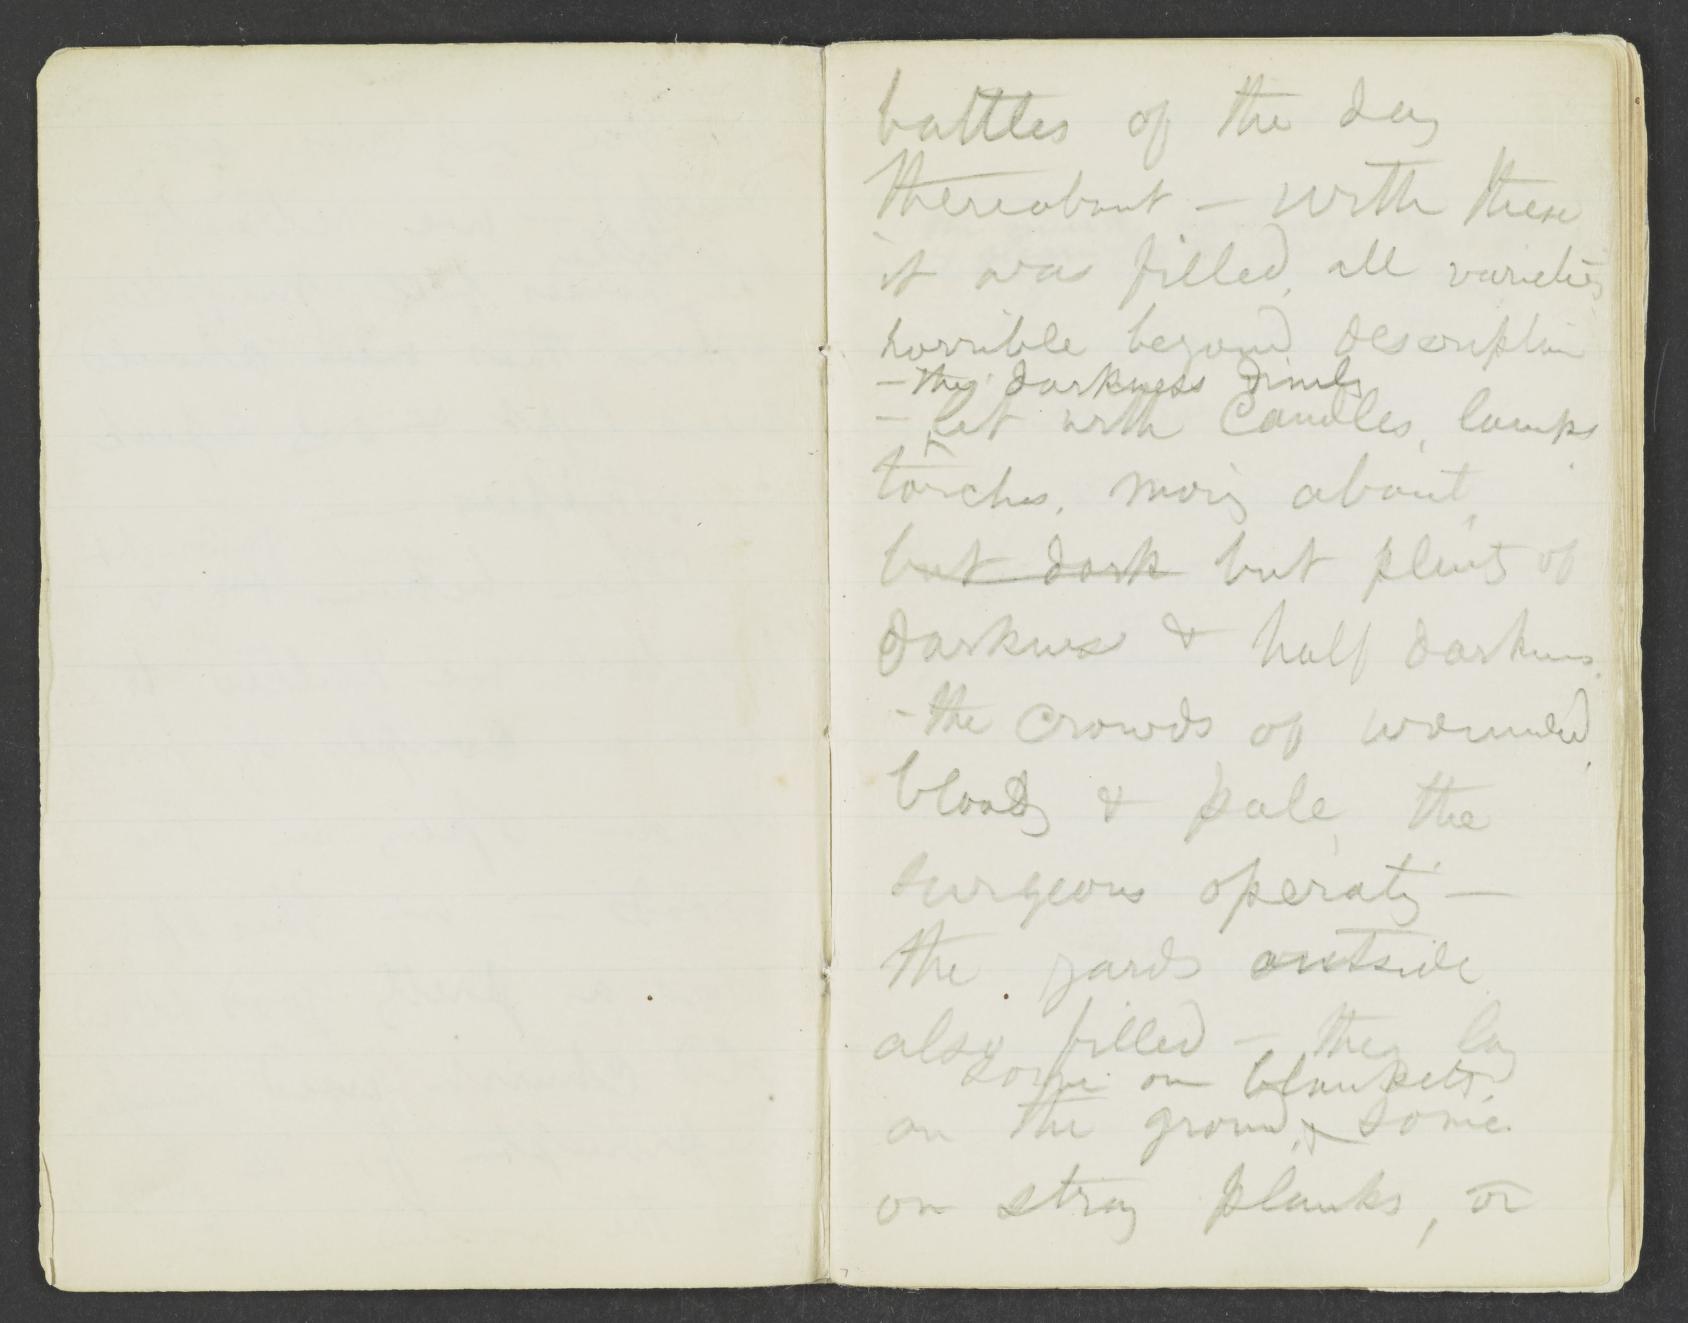 battles of the day
thereabout – with these
it was filled, all varieties
horrible beyond description
– the darkness dimly
– lit with candles, lamps
torches, moving about,
but dark but plenty of
darkness & half darkness.
– the crowds of wounded,
bloody & pale, the
surgeons operating –
the yards outside
also filled – they lay
some on blankets
on the ground, & some
on stray planks, or